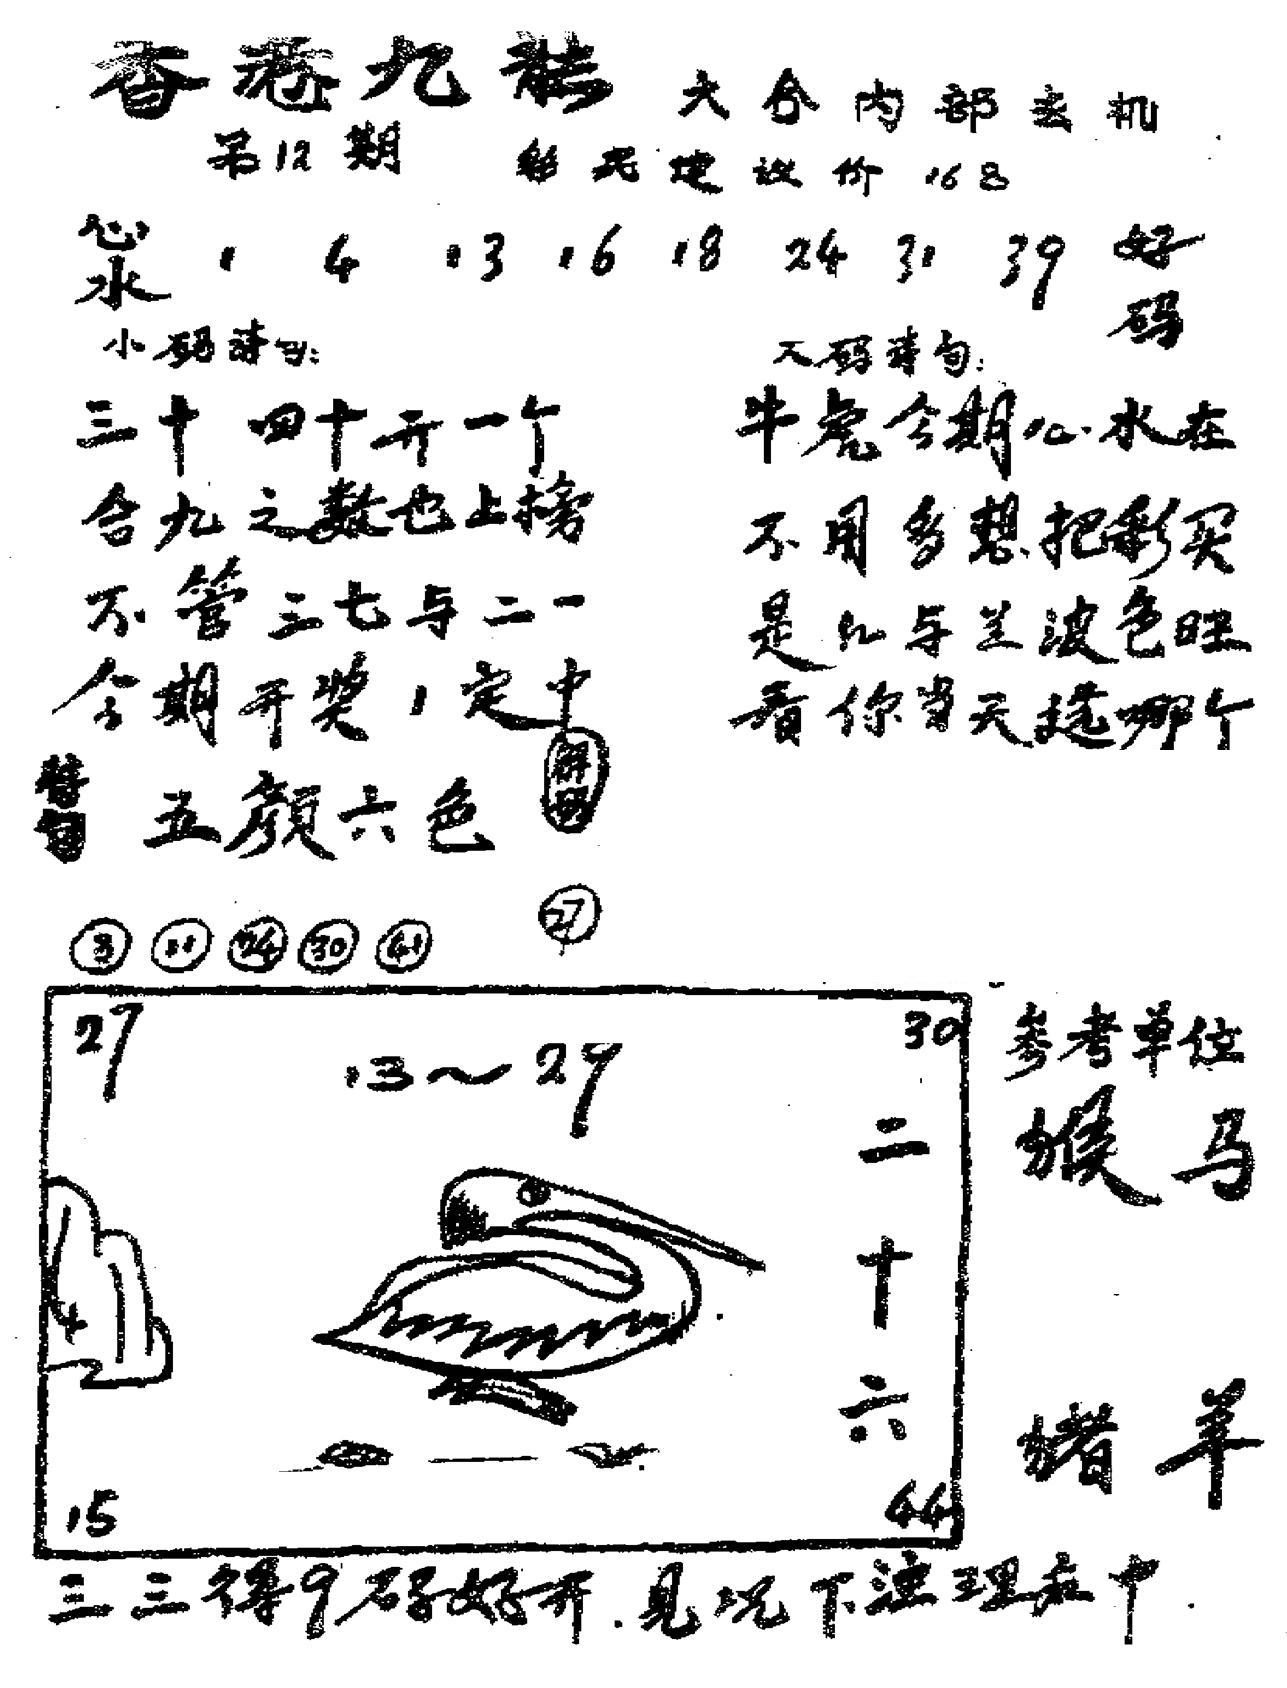 香港九龙 大公内部玄机
第12期 彩民建议价168
心水 1 4 13 16 18 24 31 39 好码
小码诗句:
三十四十开一个
含九之数也上榜
不管三七与二一
今期开奖1定中
大码诗句:
牛虎今期心水在
不用多想把彩买
是红与兰波色旺
看你当天选哪个
五颜六色
解码
3 11 24 30 41 27
27 30
13~29
二十六
15 44
参考单位
猴 马
猪 羊
三三得9码好开.见况下注理在中.